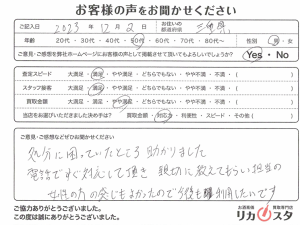 お客様の声をお聞かせください
ご記入日 2023年12月2日 お住いの都道府県 三重県
年齢 20代・30代・40代・50代・60代・70代～ 性別 男・女
ご意見・ご感想を弊社ホームページにお客様の声として掲載させて頂いてもよろしいでしょうか? Yes・No
査定スピード 大満足・満足・やや満足・どちらでもない・やや不満・不満 ( )
スタッフ接客 大満足・満足・やや満足・どちらでもない・やや不満・不満 ( )
買取金額 大満足・満足・やや満足・どちらでもない・やや不満・不満 ( )
当店をお選びいただきました決め手は? 買取金額・対応力・利便性・スピード・その他( )
ご意見・ご感想などぜひお聞かせください
処分に困っていたところ助かりました
電話ですぐ対応して頂き 親切に教えてもらい担当の
女性の方の感じもよかったので今後も利用したいです
ご協力ありがとうございました。
この度は誠にありがとうございました。
お酒高価買取専門店
リカスタ